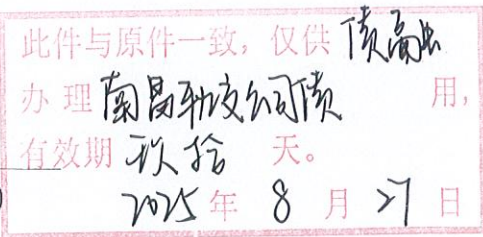 此件与原件一致，仅供 债融
办理 南昌轨交公司债 用，
有效期 玖拾 天。
2025年 8 月 27 日